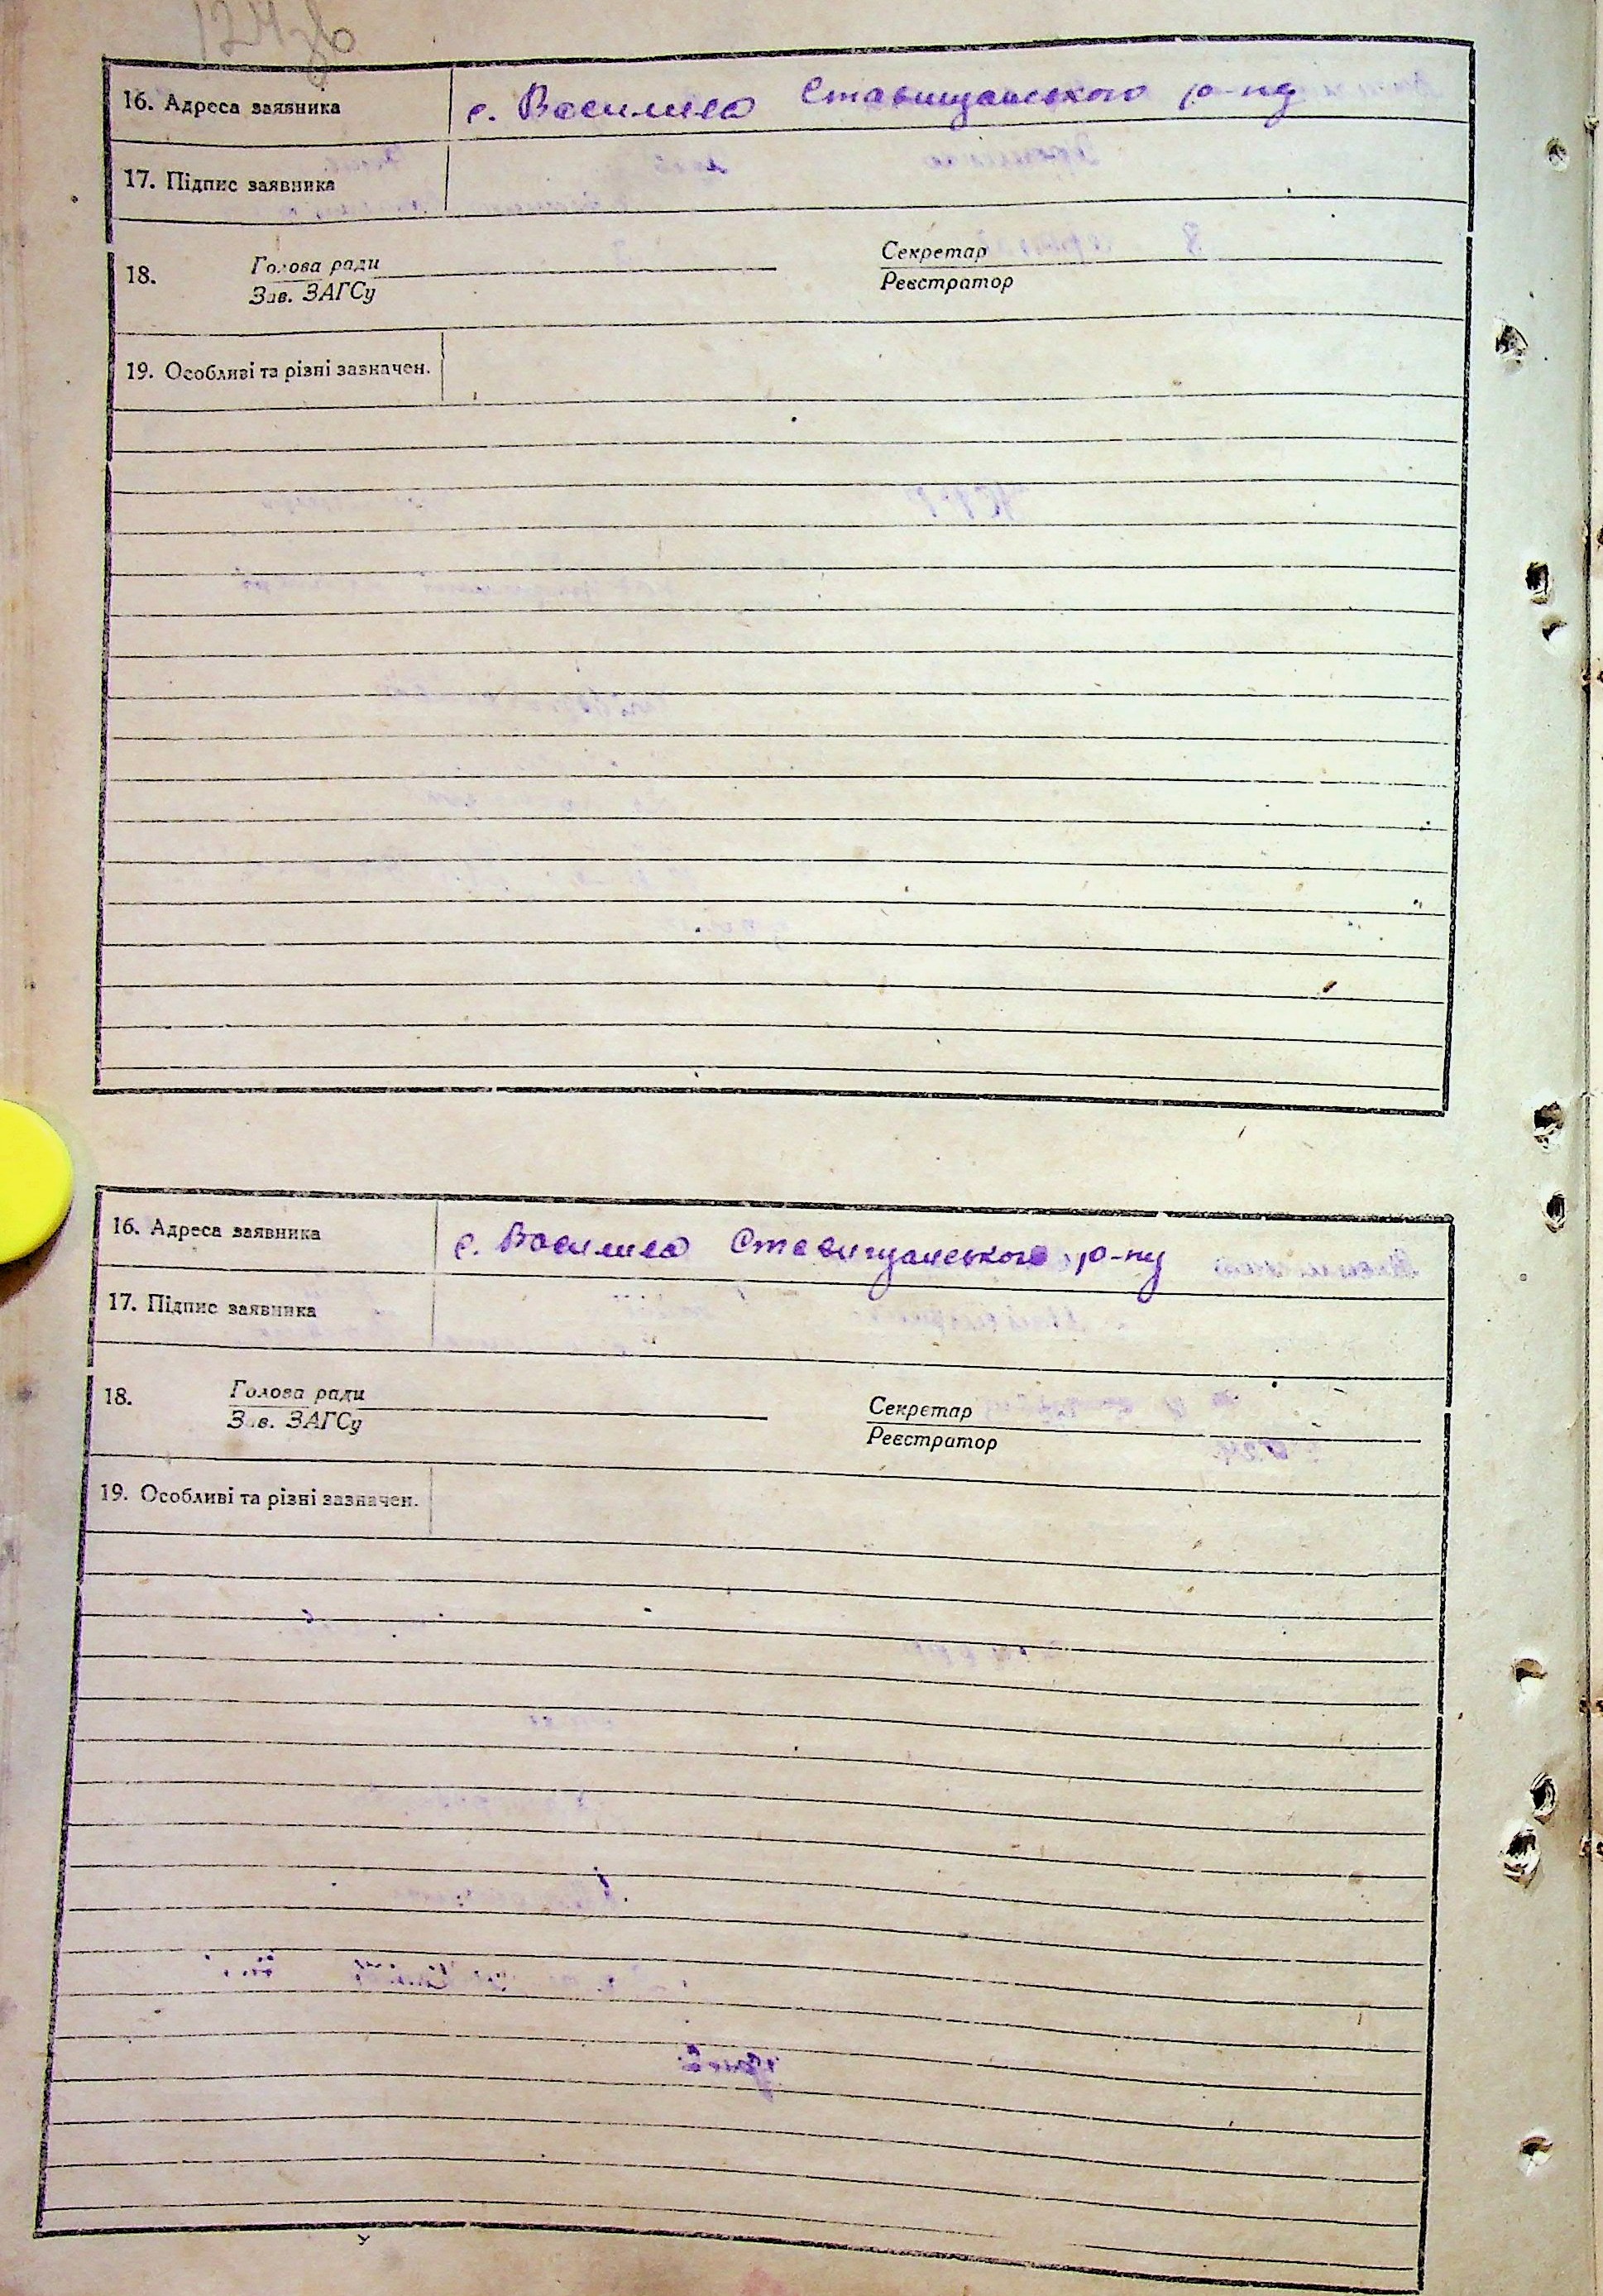 124зв
16. Адреса заявника с. Василиха Ставищанського р-ну
17. Підпис заявника
18. Голова ради Секретар
Зав. ЗАГСу Реєстратор
19. Особливі та різні зазначен.
16. Адреса заявника с. Василиха Ставищанського р-ну
17. Підпис заявника
18. Голова ради Секретар
Зав. ЗАГСу Реєстратор
19. Особливі та різні зазначен.